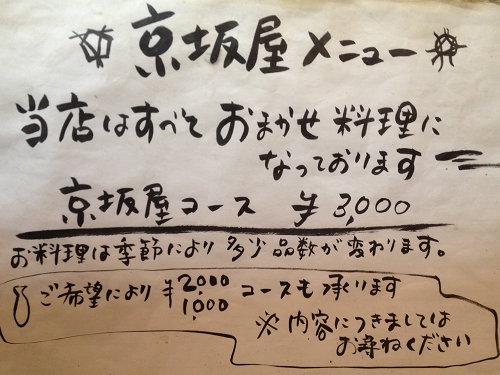 京坂屋メニュー
当店はすべて おまかせ料理に
なっております
京坂屋コース ¥3,000
お料理は季節により 多少品数が変わります。
ご希望により ¥2,000
1,000 コースも承ります
※ 内容につきましては
お尋ねください